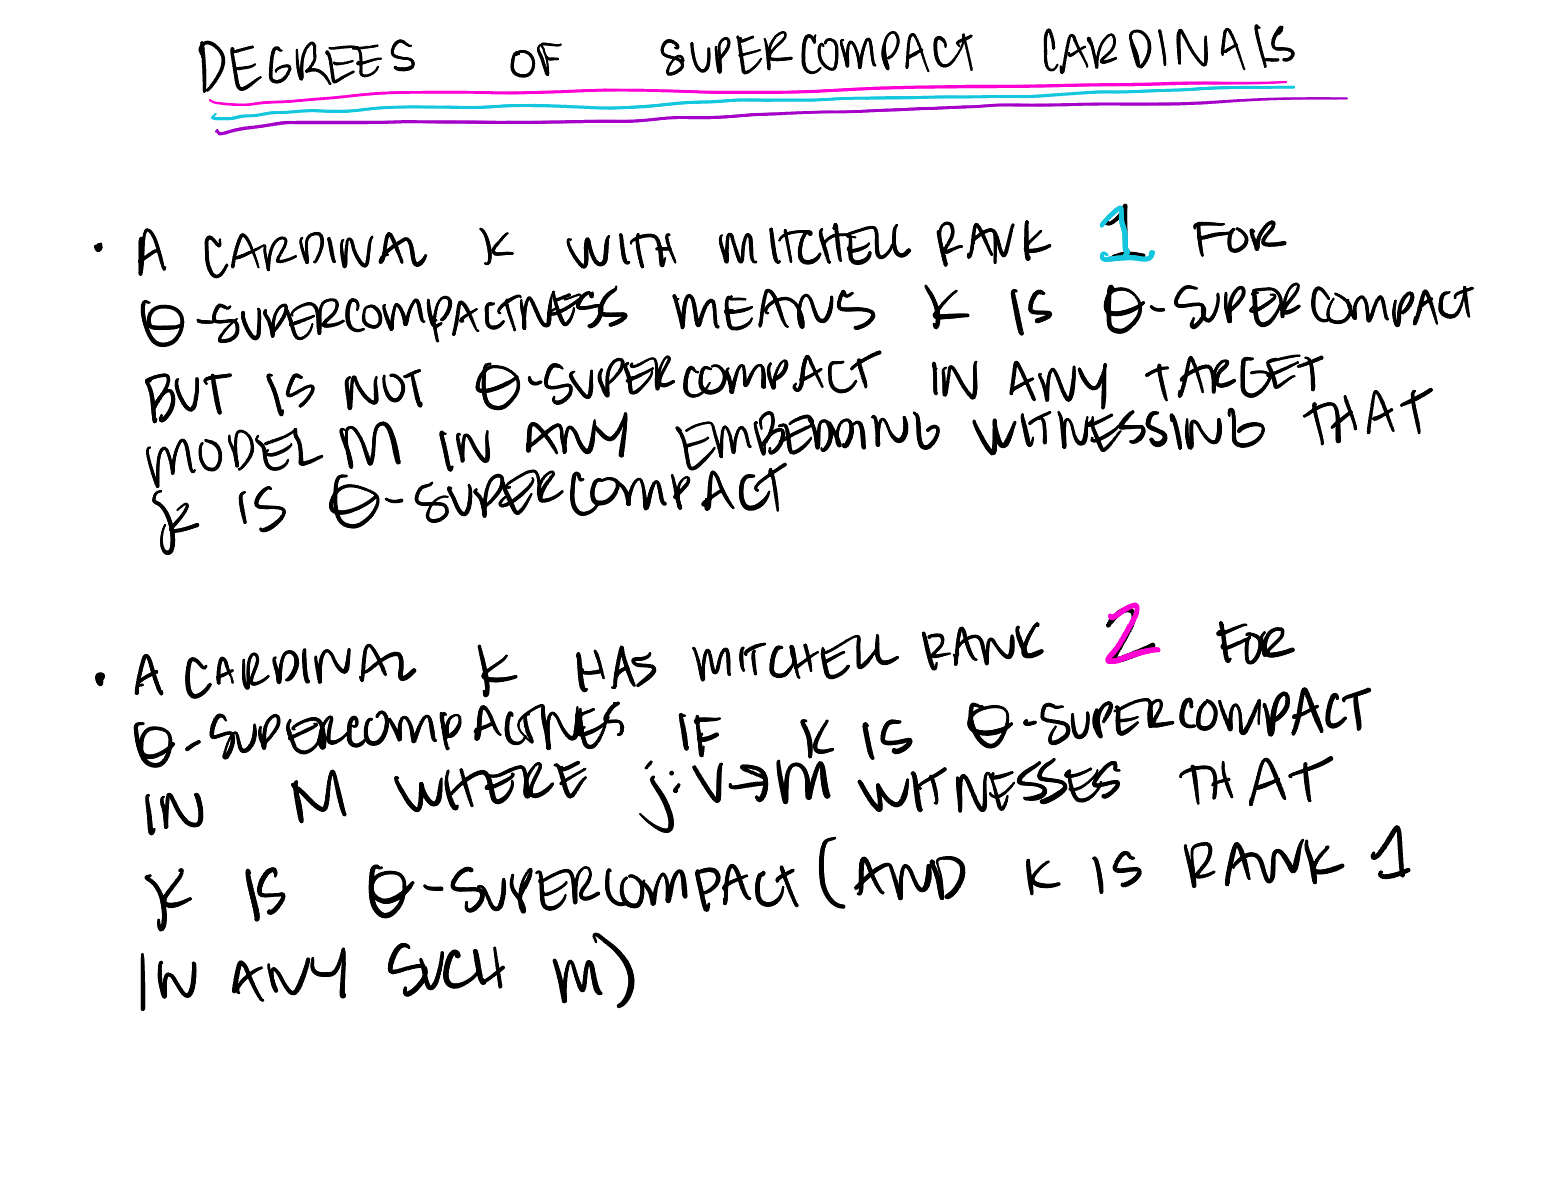 DEGREES OF SUPERCOMPACT CARDINALS
• A CARDINAL K WITH MITCHELL RANK 1 FOR
θ-SUPERCOMPACTNESS MEANS K IS θ-SUPERCOMPACT
BUT IS NOT θ-SUPERCOMPACT IN ANY TARGET
MODEL M IN ANY EMBEDDING WITNESSING THAT
K IS θ-SUPERCOMPACT
• A CARDINAL K HAS MITCHELL RANK 2 FOR
θ-SUPERCOMPACTNES IF K IS θ-SUPERCOMPACT
IN M WHERE j: V→M WITNESSES THAT
K IS θ-SUPERCOMPACT (AND K IS RANK 1
IN ANY SUCH M)